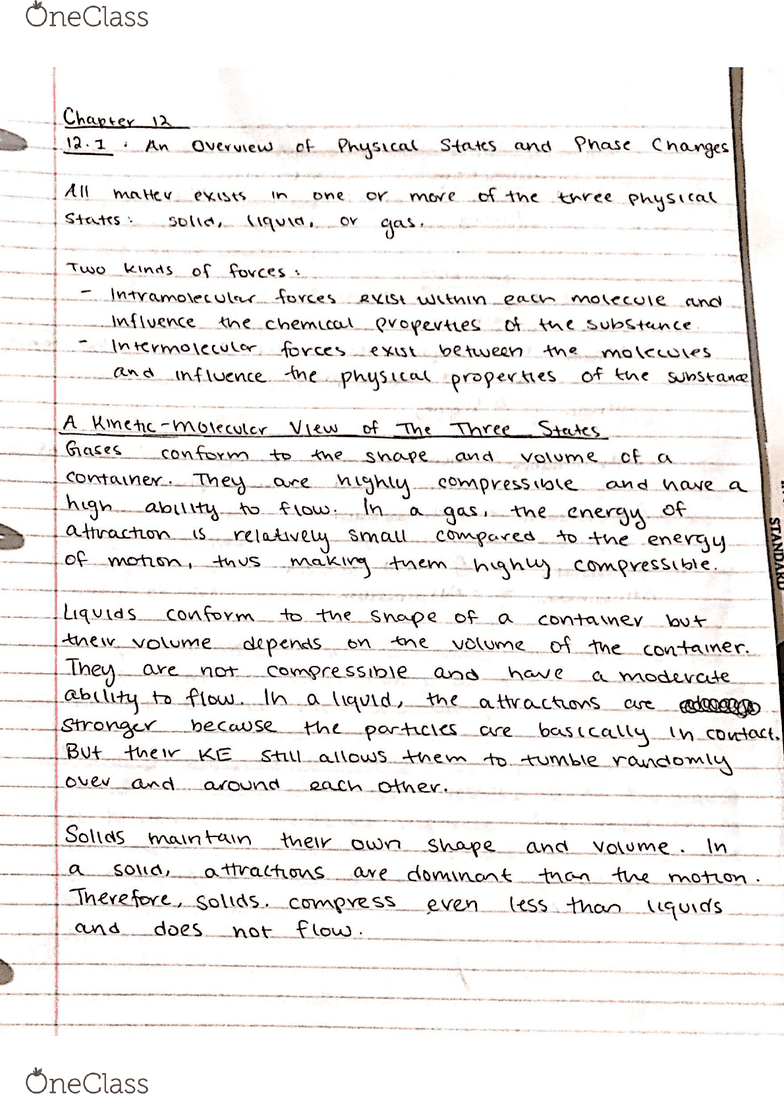 OneClass
Chapter 12
12.1 . An Overview of Physical States and Phase Changes
All matter exists in one or more of the three physical
states: solid, liquid, or gas.
Two kinds of forces:
- Intramolecular forces exist within each molecule and
influence the chemical properties of the substance.
- Intermolecular forces exist between the molecules
and influence the physical properties of the substance
A Kinetic-Molecular View of The Three States
Gases conform to the shape and volume of a
container. They are highly compressible and have a
high ability to flow. In a gas, the energy of
attraction is relatively small compared to the energy
of motion, thus making them highly compressible.
STANDARD
Liquids conform to the shape of a container but
their volume depends on the volume of the container.
They are not compressible and have a moderate
ability to flow. In a liquid, the attractions are
stronger because the particles are basically in contact.
But their KE still allows them to tumble randomly
over and around each other.
Solids maintain their own shape and volume. In
a solid, attractions are dominant than the motion.
Therefore, solids. compress even less than liquids
and does not flow.
OneClass